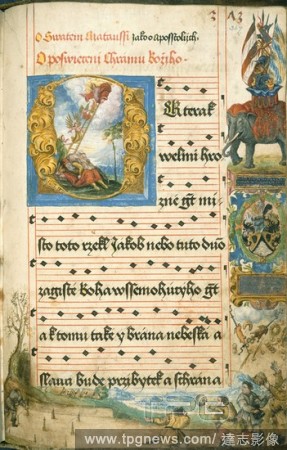 O Swatem Mataussi jako o apostolijch.
O poswieceni Chramu Božiho.
terak
welmi hro
zné gt mi
sto toto rzekl Jakob nebo tuto duo
zagiste boha wssemohúcyho gt
a k tomu také y brána nebeská a
bude przibytek a schrána
TPG
www.tpgnews.com/ 達志影像